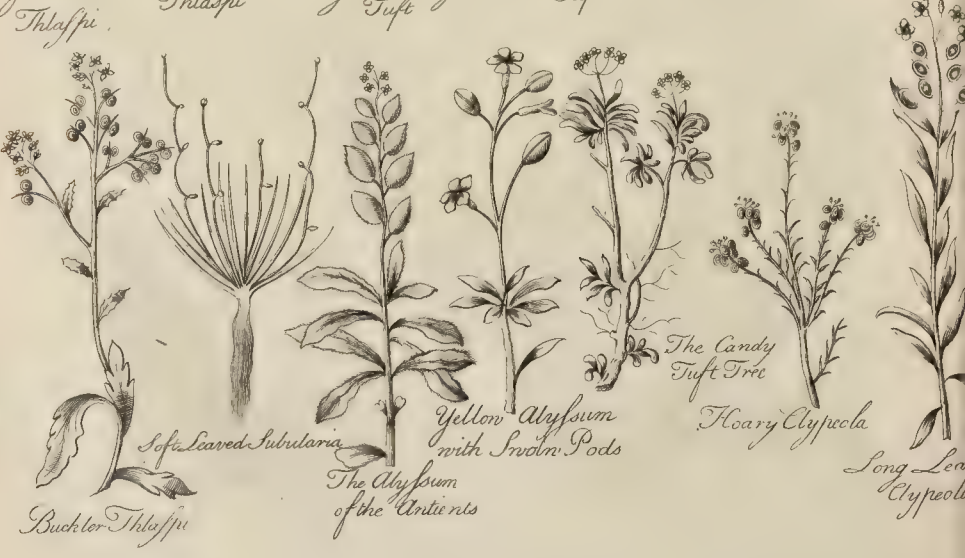 Thlaſpi.
Thlaspi
Tuft
Buckler Thlaſpi
Soft Leaved Subularia
The Alyſsum
of the Antients
Yellow Alyſsum
with Swoln Pods
The Candy
Tuft Tree
Hoary Clypeola
Long